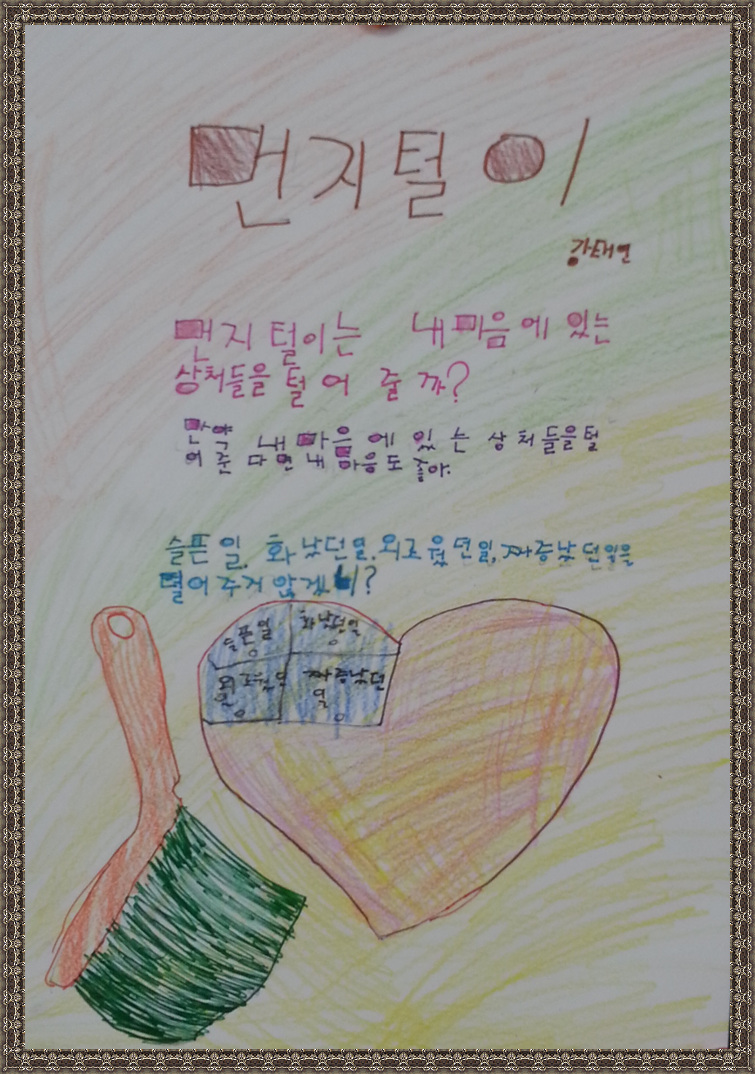 먼지털이
강태연
먼지털이는 내마음에 있는
상처들을 털어 줄까?
만약 내 마음에 있는 상처들을털
어준다면 내 마음도 좋아.
슬픈일, 화났던일, 외로웠던일, 짜증났던일을
털어주지 않겠니?
슬픈일
화났던일
외로웠던일
짜증났던
일